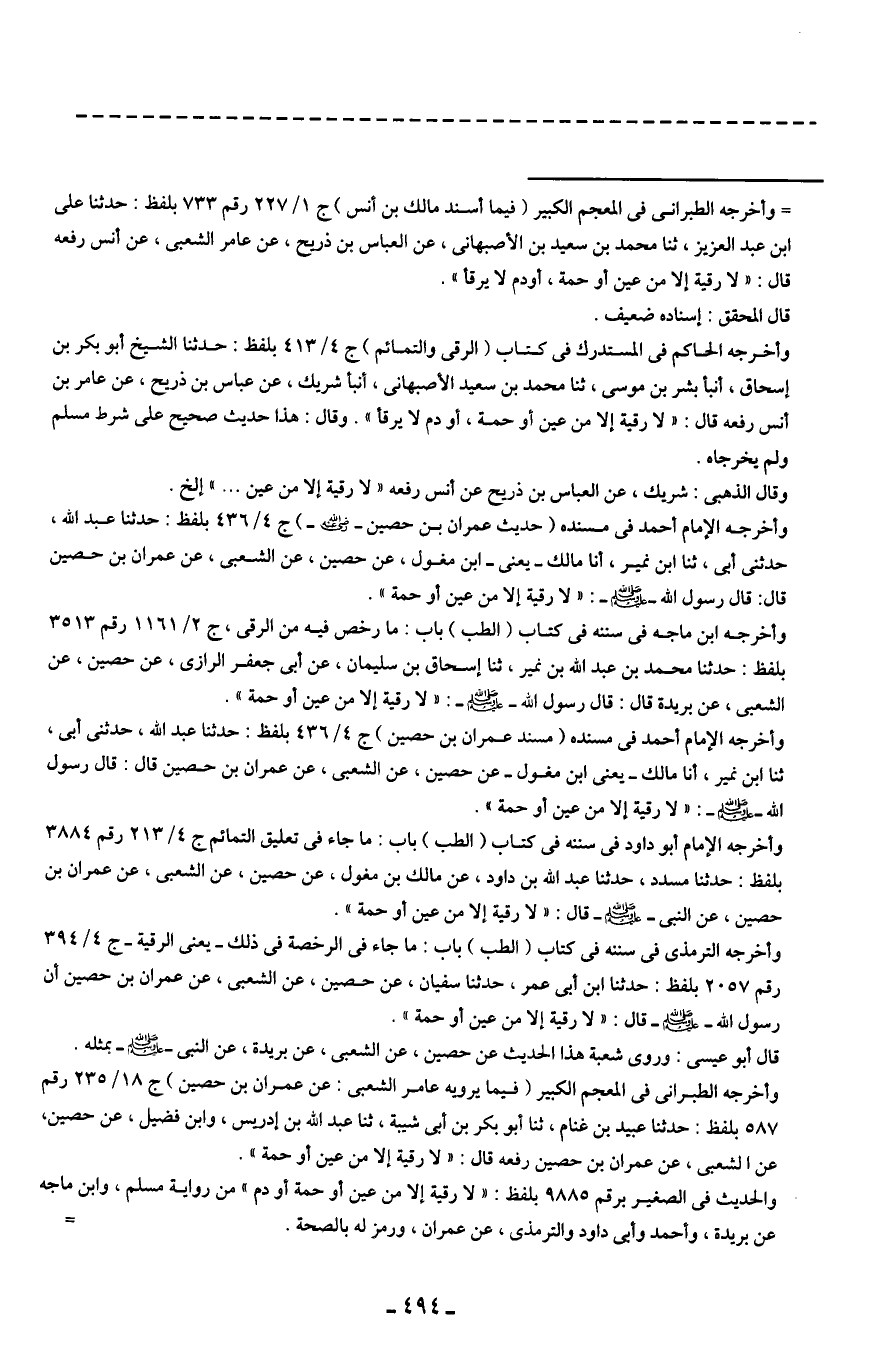 = وأخرجه الطبرانى فى المعجم الكبير ( فيما أسند مالك بن أنس ) ج ١/ ٢٢٧ رقم ٧٣٣ بلفظ : حدثنا على
ابن عبد العزيز ، ثنا محمد بن سعيد بن الأصبهانى ، عن العباس بن ذريح ، عن عامر الشعبى ، عن أنس رفعه
قال : « لا رقية إلا من عين أو حمة ، أودم لا يرقأ » .
قال المحقق : إسناده ضعيف .
وأخرجه الحاكم فى المستدرك فى كتاب ( الرقى والتمائم ) ج ٤/ ٤١٣ بلفظ : حدثنا الشيخ أبو بكر بن
إسحاق ، أنبأ بشر بن موسى ، ثنا محمد بن سعيد الأصبهانى ، أنبأ شريك ، عن عباس بن ذريح ، عن عامر بن
أنس رفعه قال : « لا رقية إلا من عين أو حمة ، أو دم لا يرقأ » . وقال : هذا حديث صحيح على شرط مسلم
ولم يخرجاه .
وقال الذهبى : شريك ، عن العباس بن ذريح عن أنس رفعه « لا رقية إلا من عين ... » إلخ .
وأخرجه الإمام أحمد فى مسنده ( حديث عمران بن حصين ـ رضي الله عنه ـ ) ج ٤/ ٤٣٦ بلفظ : حدثنا عبد الله ،
حدثنى أبى ، ثنا ابن نمير ، أنا مالك ـ يعنى ـ ابن مغول ، عن حصين ، عن الشعبى ، عن عمران بن حصين
قال: قال رسول الله ـ ﷺ ـ : « لا رقية إلا من عين أو حمة » .
وأخرجه ابن ماجه فى سننه فى كتاب ( الطب ) باب : ما رخص فيه من الرقى ، ج ٢/ ١١٦١ رقم ٣٥١٣
بلفظ : حدثنا محمد بن عبد الله بن نمير ، ثنا إسحاق بن سليمان ، عن أبى جعفر الرازى ، عن حصين ، عن
الشعبى ، عن بريدة قال : قال رسول الله ـ ﷺ ـ : « لا رقية إلا من عين أو حمة » .
وأخرجه الإمام أحمد فى مسنده ( مسند عمران بن حصين ) ج ٤/ ٤٣٦ بلفظ : حدثنا عبد الله ، حدثنى أبى ،
ثنا ابن نمير ، أنا مالك ـ يعنى ابن مغول ـ عن حصين ، عن الشعبى ، عن عمران بن حصين قال : قال رسول
الله ـ ﷺ ـ : « لا رقية إلا من عين أو حمة » .
وأخرجه الإمام أبو داود فى سننه فى كتاب ( الطب ) باب : ما جاء فى تعليق التمائم ج ٤/ ٢١٣ رقم ٣٨٨٤
بلفظ : حدثنا مسدد ، حدثنا عبد الله بن داود ، عن مالك بن مغول ، عن حصين ، عن الشعبى ، عن عمران بن
حصين ، عن النبى ـ ﷺ ـ قال : « لا رقية إلا من عين أو حمة » .
وأخرجه الترمذى فى سننه فى كتاب ( الطب ) باب : ما جاء فى الرخصة فى ذلك ـ يعنى الرقية ـ ج ٤/ ٣٩٤
رقم ٢٠٥٧ بلفظ : حدثنا ابن أبى عمر ، حدثنا سفيان ، عن حصين ، عن الشعبى ، عن عمران بن حصين أن
رسول الله ـ ﷺ ـ قال : « لا رقية إلا من عين أو حمة » .
قال أبو عيسى : وروى شعبة هذا الحديث عن حصين ، عن الشعبى ، عن بريدة ، عن النبى ـ ﷺ ـ بمثله .
وأخرجه الطبرانى فى المعجم الكبير ( فيما يرويه عامر الشعبى : عن عمران بن حصين ) ج ١٨/ ٢٣٥ رقم
٥٨٧ بلفظ : حدثنا عبيد بن غنام ، ثنا أبو بكر بن أبى شيبة ، ثنا عبد الله بن إدريس ، وابن فضيل ، عن حصين،
عن ا لشعبى ، عن عمران بن حصين رفعه قال : « لا رقية إلا من عين أو حمة » .
والحديث فى الصغير برقم ٩٨٨٥ بلفظ : « لا رقية إلا من عين أو حمة أو دم » من رواية مسلم ، وابن ماجه
عن بريدة ، وأحمد وأبى داود والترمذى ، عن عمران ، ورمز له بالصحة . =
ـ ٤٩٤ ـ